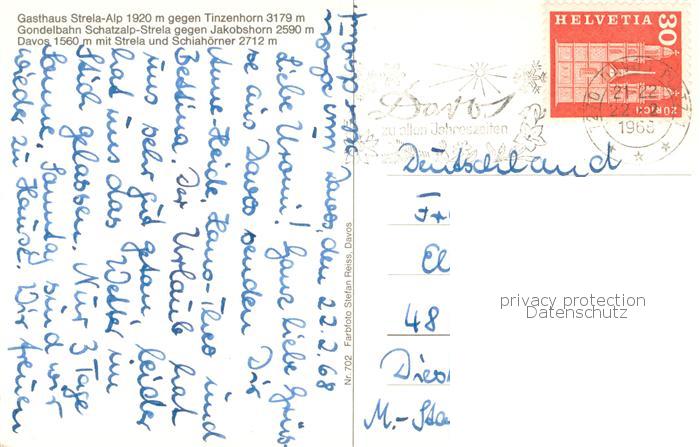 Gasthaus Strela-Alp 1920 m gegen Tinzenhorn 3179 m
Gondelbahn Schatzalp-Strela gegen Jakobshorn 2590 m
Davos 1560 m mit Strela und Schiahörner 2712 m
Davos, den 22.2.68
Liebe Uromi! Ganz liebe Grüs-
se aus Davos senden Dir
Anne-Heide, Hans-Theo und
Bettina. Der Urlaub hat
uns sehr gut getan, leider
hat uns das Wetter im
Stich gelassen. Nur 3 Tage
Sonne, Samstag sind wir
wieder zu Hause. Wir freuen
Nr. 702 Farbfoto Stefan Reiss, Davos
HELVETIA
30
ZÜRICH
21-22
1968
Davos
zu allen Jahreszeiten
Deutschland
Fr
El
48
M.-Sta
privacy protection
Datenschutz